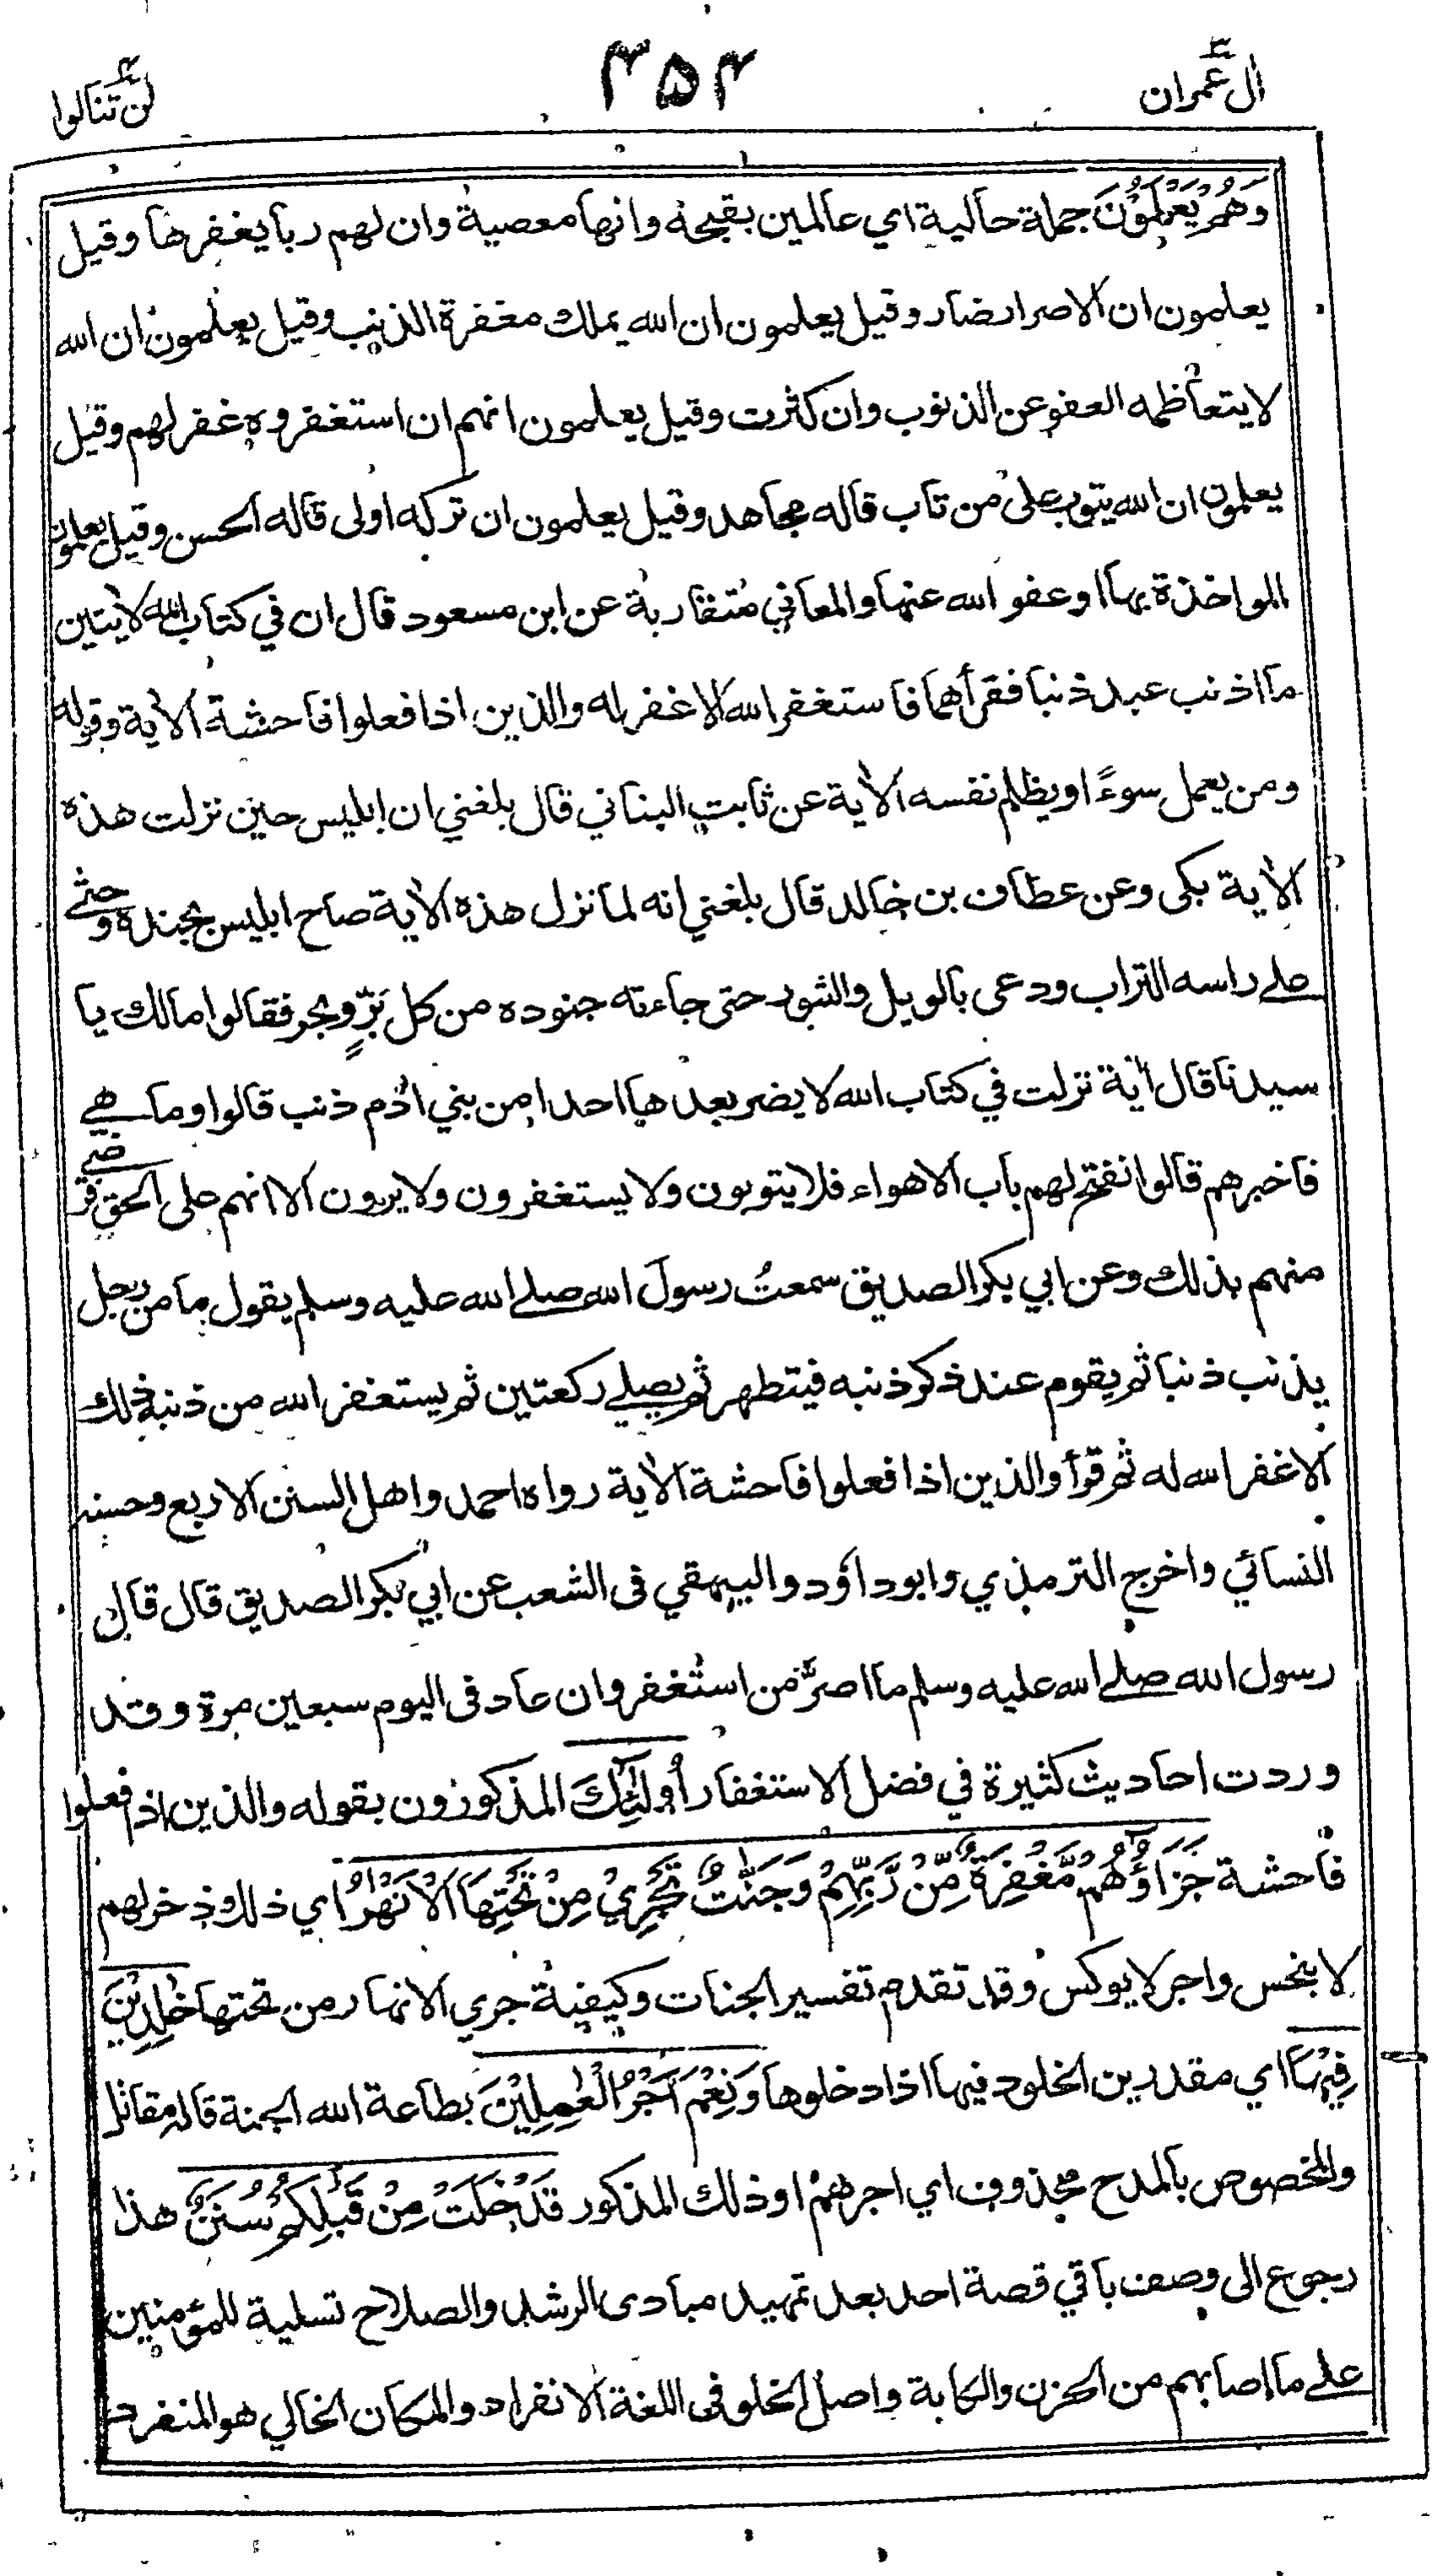 اٰل عمران ٣
٣٥٢
لن تنالوا ٤
وَهُمْ يَعْلَمُوْنَ جملة حالية اي عالمين بقبحه وانها معصية وان لهم ربا يغفرها وقيل
يعلمون ان الاصرار ضار وقيل يعلمون ان الله يملك مغفرة الذنب وقيل يعلمون ان الله
لا يتعاظمه العفو عن الذنوب وان كثرت وقيل يعلمون انهم ان استغفروه غفر لهم وقيل
يعلمون ان الله يتوب على من تاب قاله مجاهد وقيل يعلمون ان تركه اولى قاله الحسن وقيل يعلمون
المواخذة بها او عفو الله عنها والمعاني متقاربة عن ابن مسعود قال ان في كتاب الله لايتين
ما اذنب عبد ذنبا فقرأهما فاستغفر الله الا غفر له والذين اذا فعلوا فاحشة الاٰية وقوله
ومن يعمل سوءً او يظلم نفسه الاٰية عن ثابت البناني قال بلغني ان ابليس حين نزلت هذه
الاٰية بكى وعن عطاف بن خالد قال بلغني انه لما نزل هذه الاٰية صاح ابليس بجنده وحثى
على راسه التراب ودعى بالويل والثبور حتى جاءته جنوده من كل بَرٍّ وبحر فقالوا مالك يا
سيدنا قال اٰية نزلت في كتاب الله لا يضر بعدها احدا من بني اٰدم ذنب قالوا وما هي
فاخبرهم قالوا نفتح لهم باب الاهواء فلا يتوبون ولا يستغفرون ولا يرون الا انهم على الحق فرضي
منهم بذلك وعن ابي بكر الصديق سمعتُ رسولَ الله صلى الله عليه وسلم يقول ما من رجل
يذنب ذنبا ثم يقوم عند ذكر ذنبه فيتطهر ثم يصلي ركعتين ثم يستغفر الله من ذنبه ذلك
الا غفر الله له ثم قرأ والذين اذا فعلوا فاحشة الاٰية رواه احمد واهل السنن الاربع وحسنه
النسائي واخرج الترمذي وابو داؤد والبيهقي فى الشعب عن ابي بكر الصديق قال قال
رسول الله صلى الله عليه وسلم ما اصرَّ من استغفر وان عاد فى اليوم سبعين مرة وقد
وردت احاديث كثيرة في فضل الاستغفار أُولٰئِكَ المذكورون بقوله والذين اذا فعلوا
فاحشة جَزَاؤُهُمْ مَّغْفِرَةٌ مِّنْ رَّبِّهِمْ وَجَنّٰتٌ تَجْرِيْ مِنْ تَحْتِهَا الْاَنْهٰرُ اي ذلك ذخر لهم
لا يبخس واجر لا يوكس وقد تقدم تفسير الجنات وكيفية جري الانهار من تحتها خٰلِدِيْنَ
فِيْهَا اي مقدرين الخلود فيها اذا دخلوها وَنِعْمَ اَجْرُ الْعٰمِلِيْنَ بطاعة الله الجنة قاله مقاتل
والمخصوص بالمدح محذوف اي اجرهم او ذلك المذكور قَدْ خَلَتْ مِنْ قَبْلِكُمْ سُنَنٌ هذا
رجوع الى وصف باقي قصة احد بعد تمهيد مبادى الرشد والصلاح تسلية للمؤمنين
على ما اصابهم من الحزن والكابة واصل الخلو فى اللغة الانفراد والمكان الخالي هو المنفرد